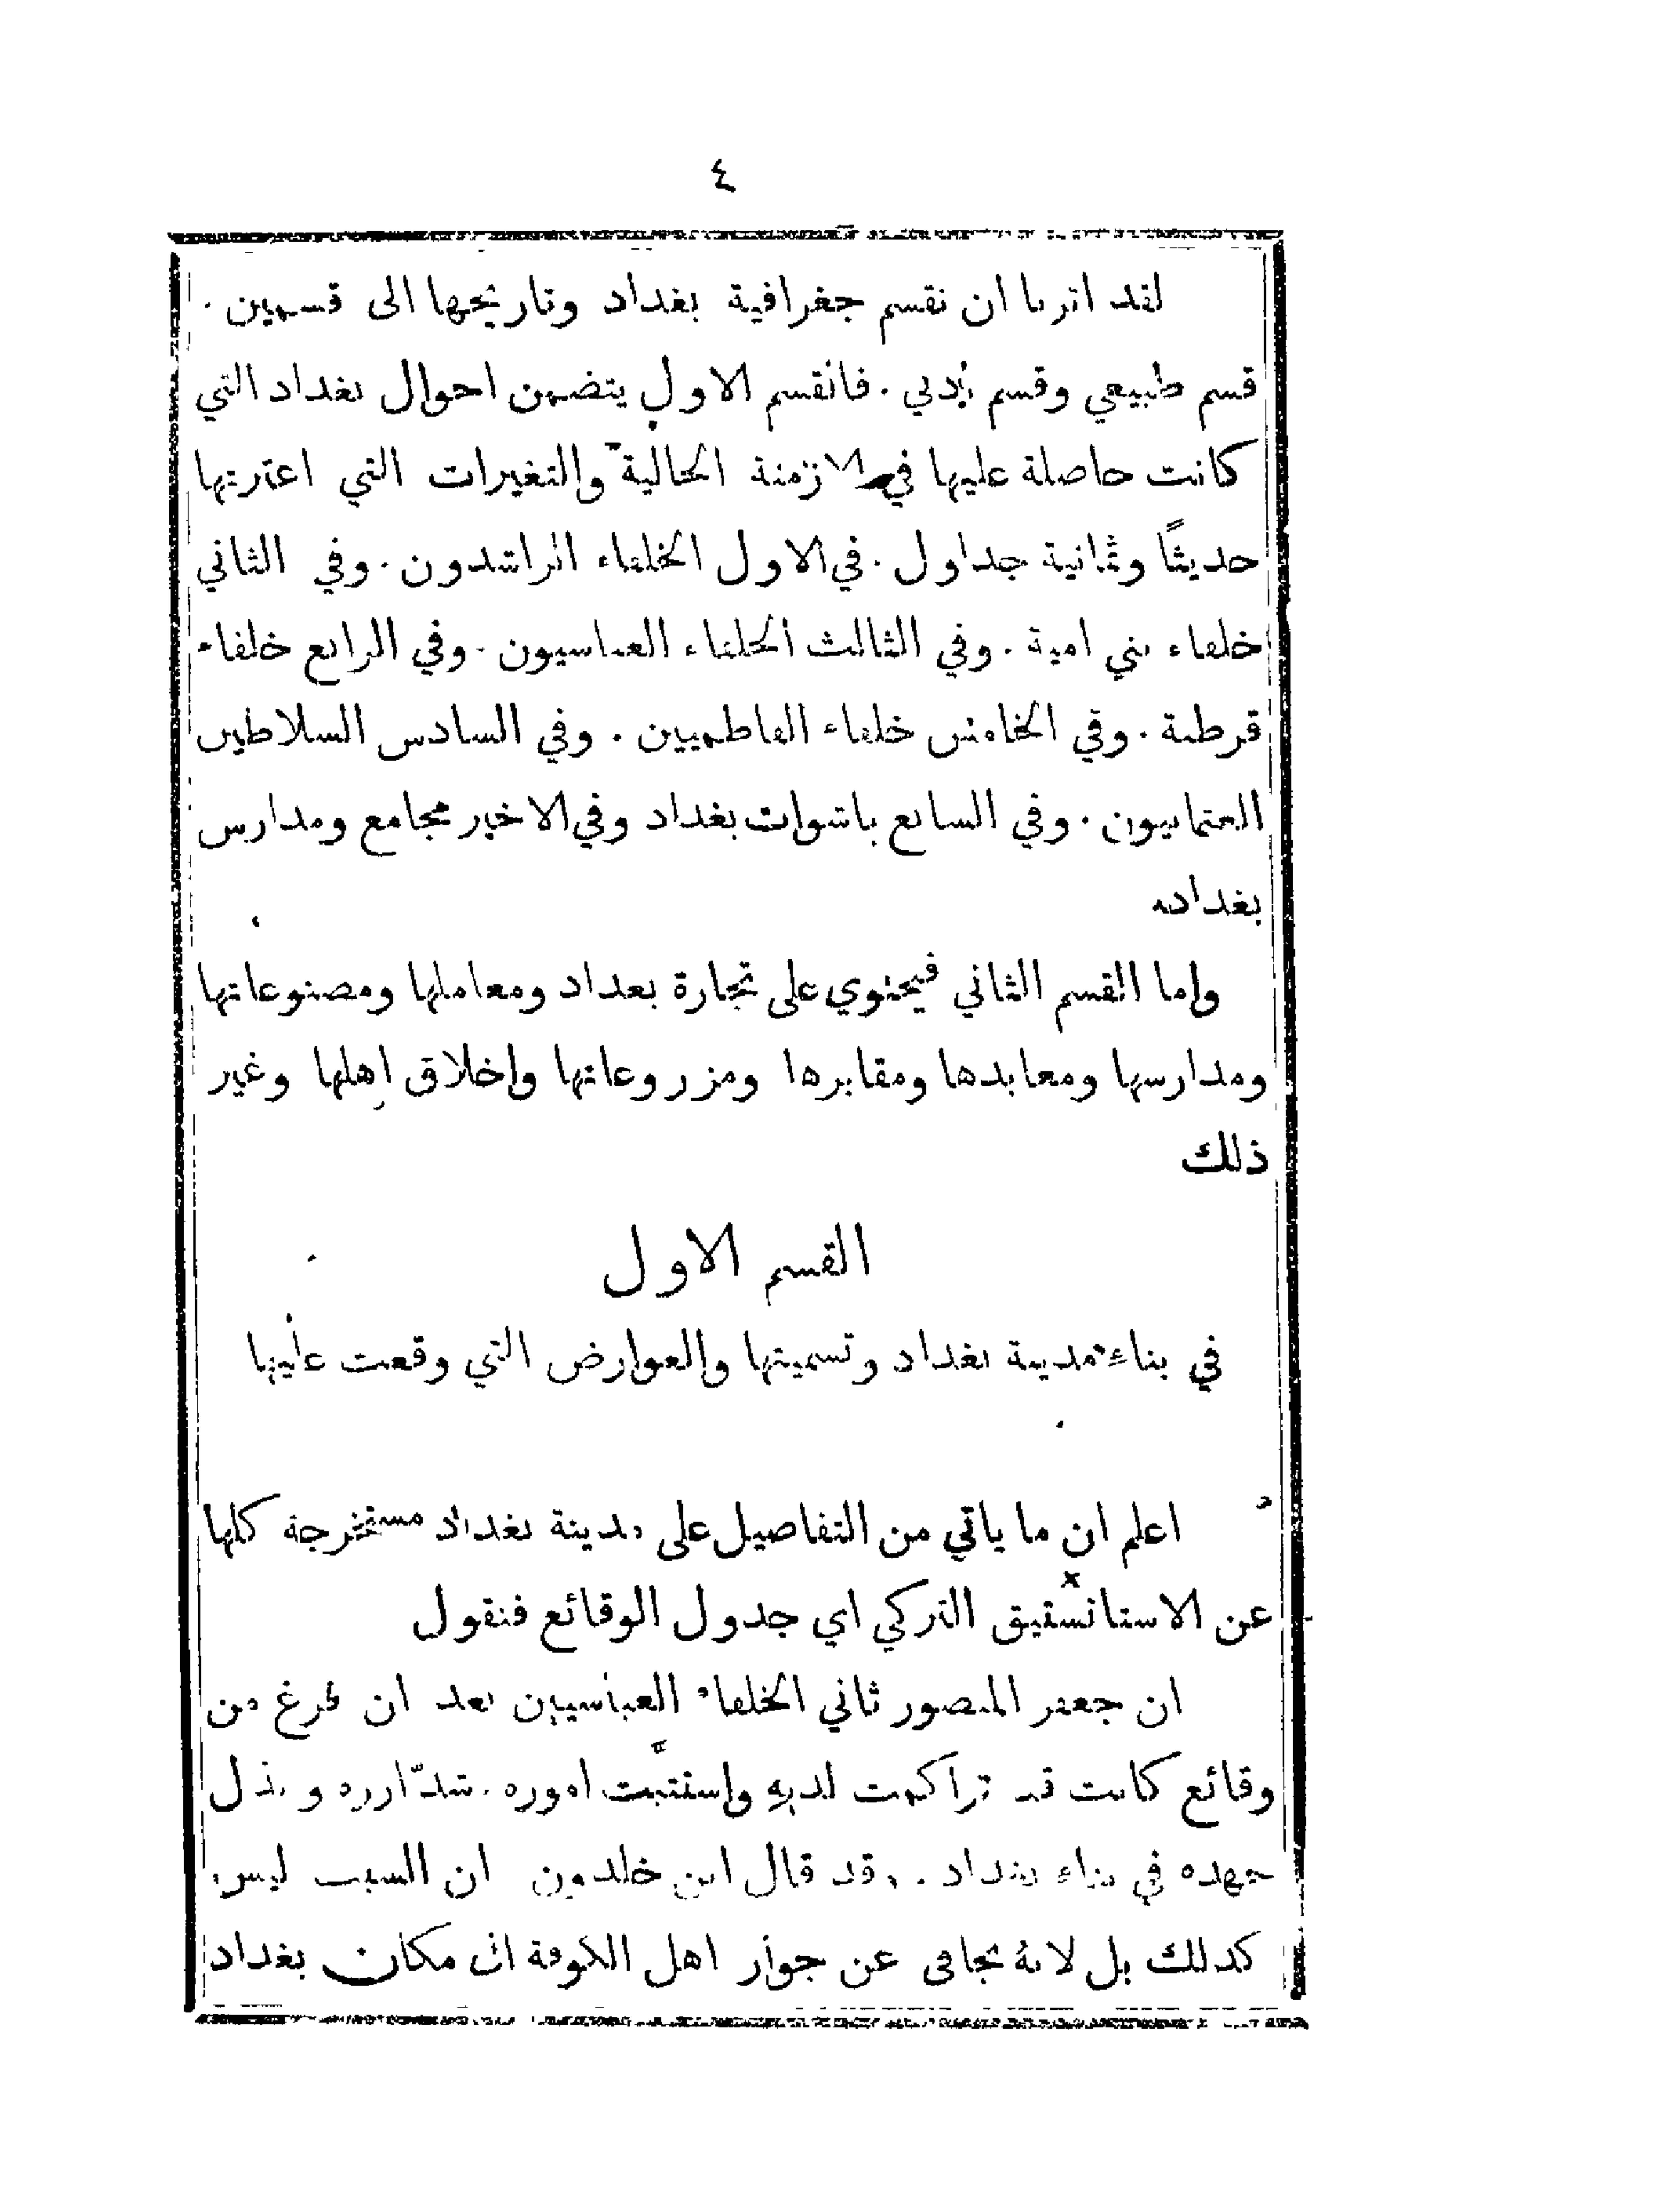 ٤
لقد اثرنا ان نقسم جغرافية بغداد وتاريخها الى قسمين .
قسم طبيعي وقسم أدبي . فالقسم الاول يتضمن احوال بغداد التي
كانت حاصلة عليها في الازمنة الخالية والتغيرات التي اعترتها
حديثًا وثمانية جداول . في الاول الخلفاء الراشدون . وفي الثاني
خلفاء بني امية . وفي الثالث الخلفاء العباسيون . وفي الرابع خلفاء
قرطبة . وفي الخامس خلفاء الفاطميين . وفي السادس السلاطين
العثمانيون . وفي السابع باشوات بغداد وفي الاخير مجامع ومدارس
بغداد
واما القسم الثاني فيحتوي على تجارة بغداد ومعاملها ومصنوعاتها
ومدارسها ومعابدها ومقابرها ومزروعاتها واخلاق اهلها وغير
ذلك
القسم الاول
في بناء مدينة بغداد وتسميتها والعوارض التي وقعت عليها
اعلم ان ما ياتي من التفاصيل على مدينة بغداد مستخرجة كلها
عن الاستانستيق التركي اي جدول الوقائع فنقول
ان جعفر المنصور ثاني الخلفاء العباسيين بعد ان فرغ من
وقائع كانت قد تراكمت لديه واستتبت اموره . شدّ ازره وبذل
جهده في بناء بغداد . وقد قال ابن خلدون ان السبب ليس
كذلك بل لانهُ تجافى عن جوار اهل الكوفة ان مكان بغداد